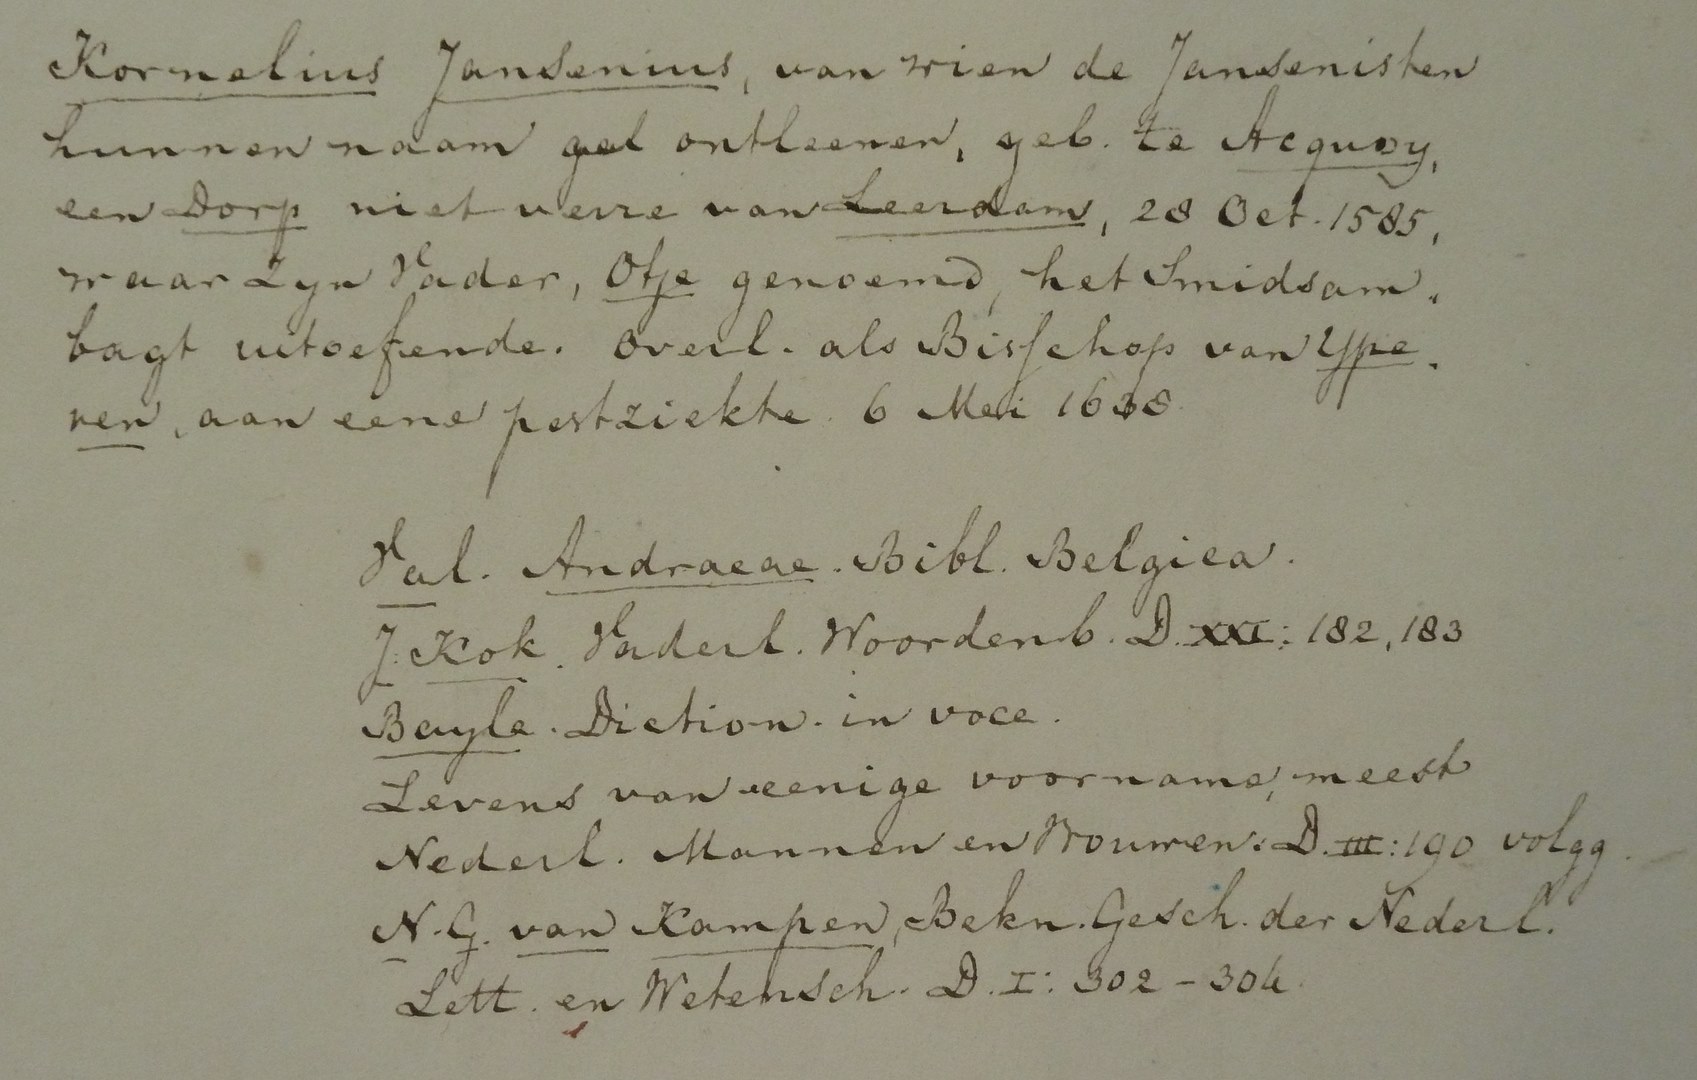 Kornelius Jansenius, van wien de Jansenisten
hunnen naam ontleenen, geb. te Acquoy,
een Dorp niet verre van Leerdam, 28 Oct. 1585,
waar zyn Vader, Otje genoemd, het Smidsam-
bagt uitoefende. Overl. als Bisschop van Ype-
ren, aan eene pestziekte. 6 Mei 1638
Val. Andraeae. Bibl. Belgica.
J. Kok. Vaderl. Woordenb. D. XXI: 182, 183
Bayle. Diction. in voce.
Levens van eenige voorname, meest
Nederl. Mannen en Vrouwen. D. III: 190 volgg.
N. G. van Kampen, Bekn. Gesch. der Nederl.
Lett. en Wetensch. D. I: 302 - 304.